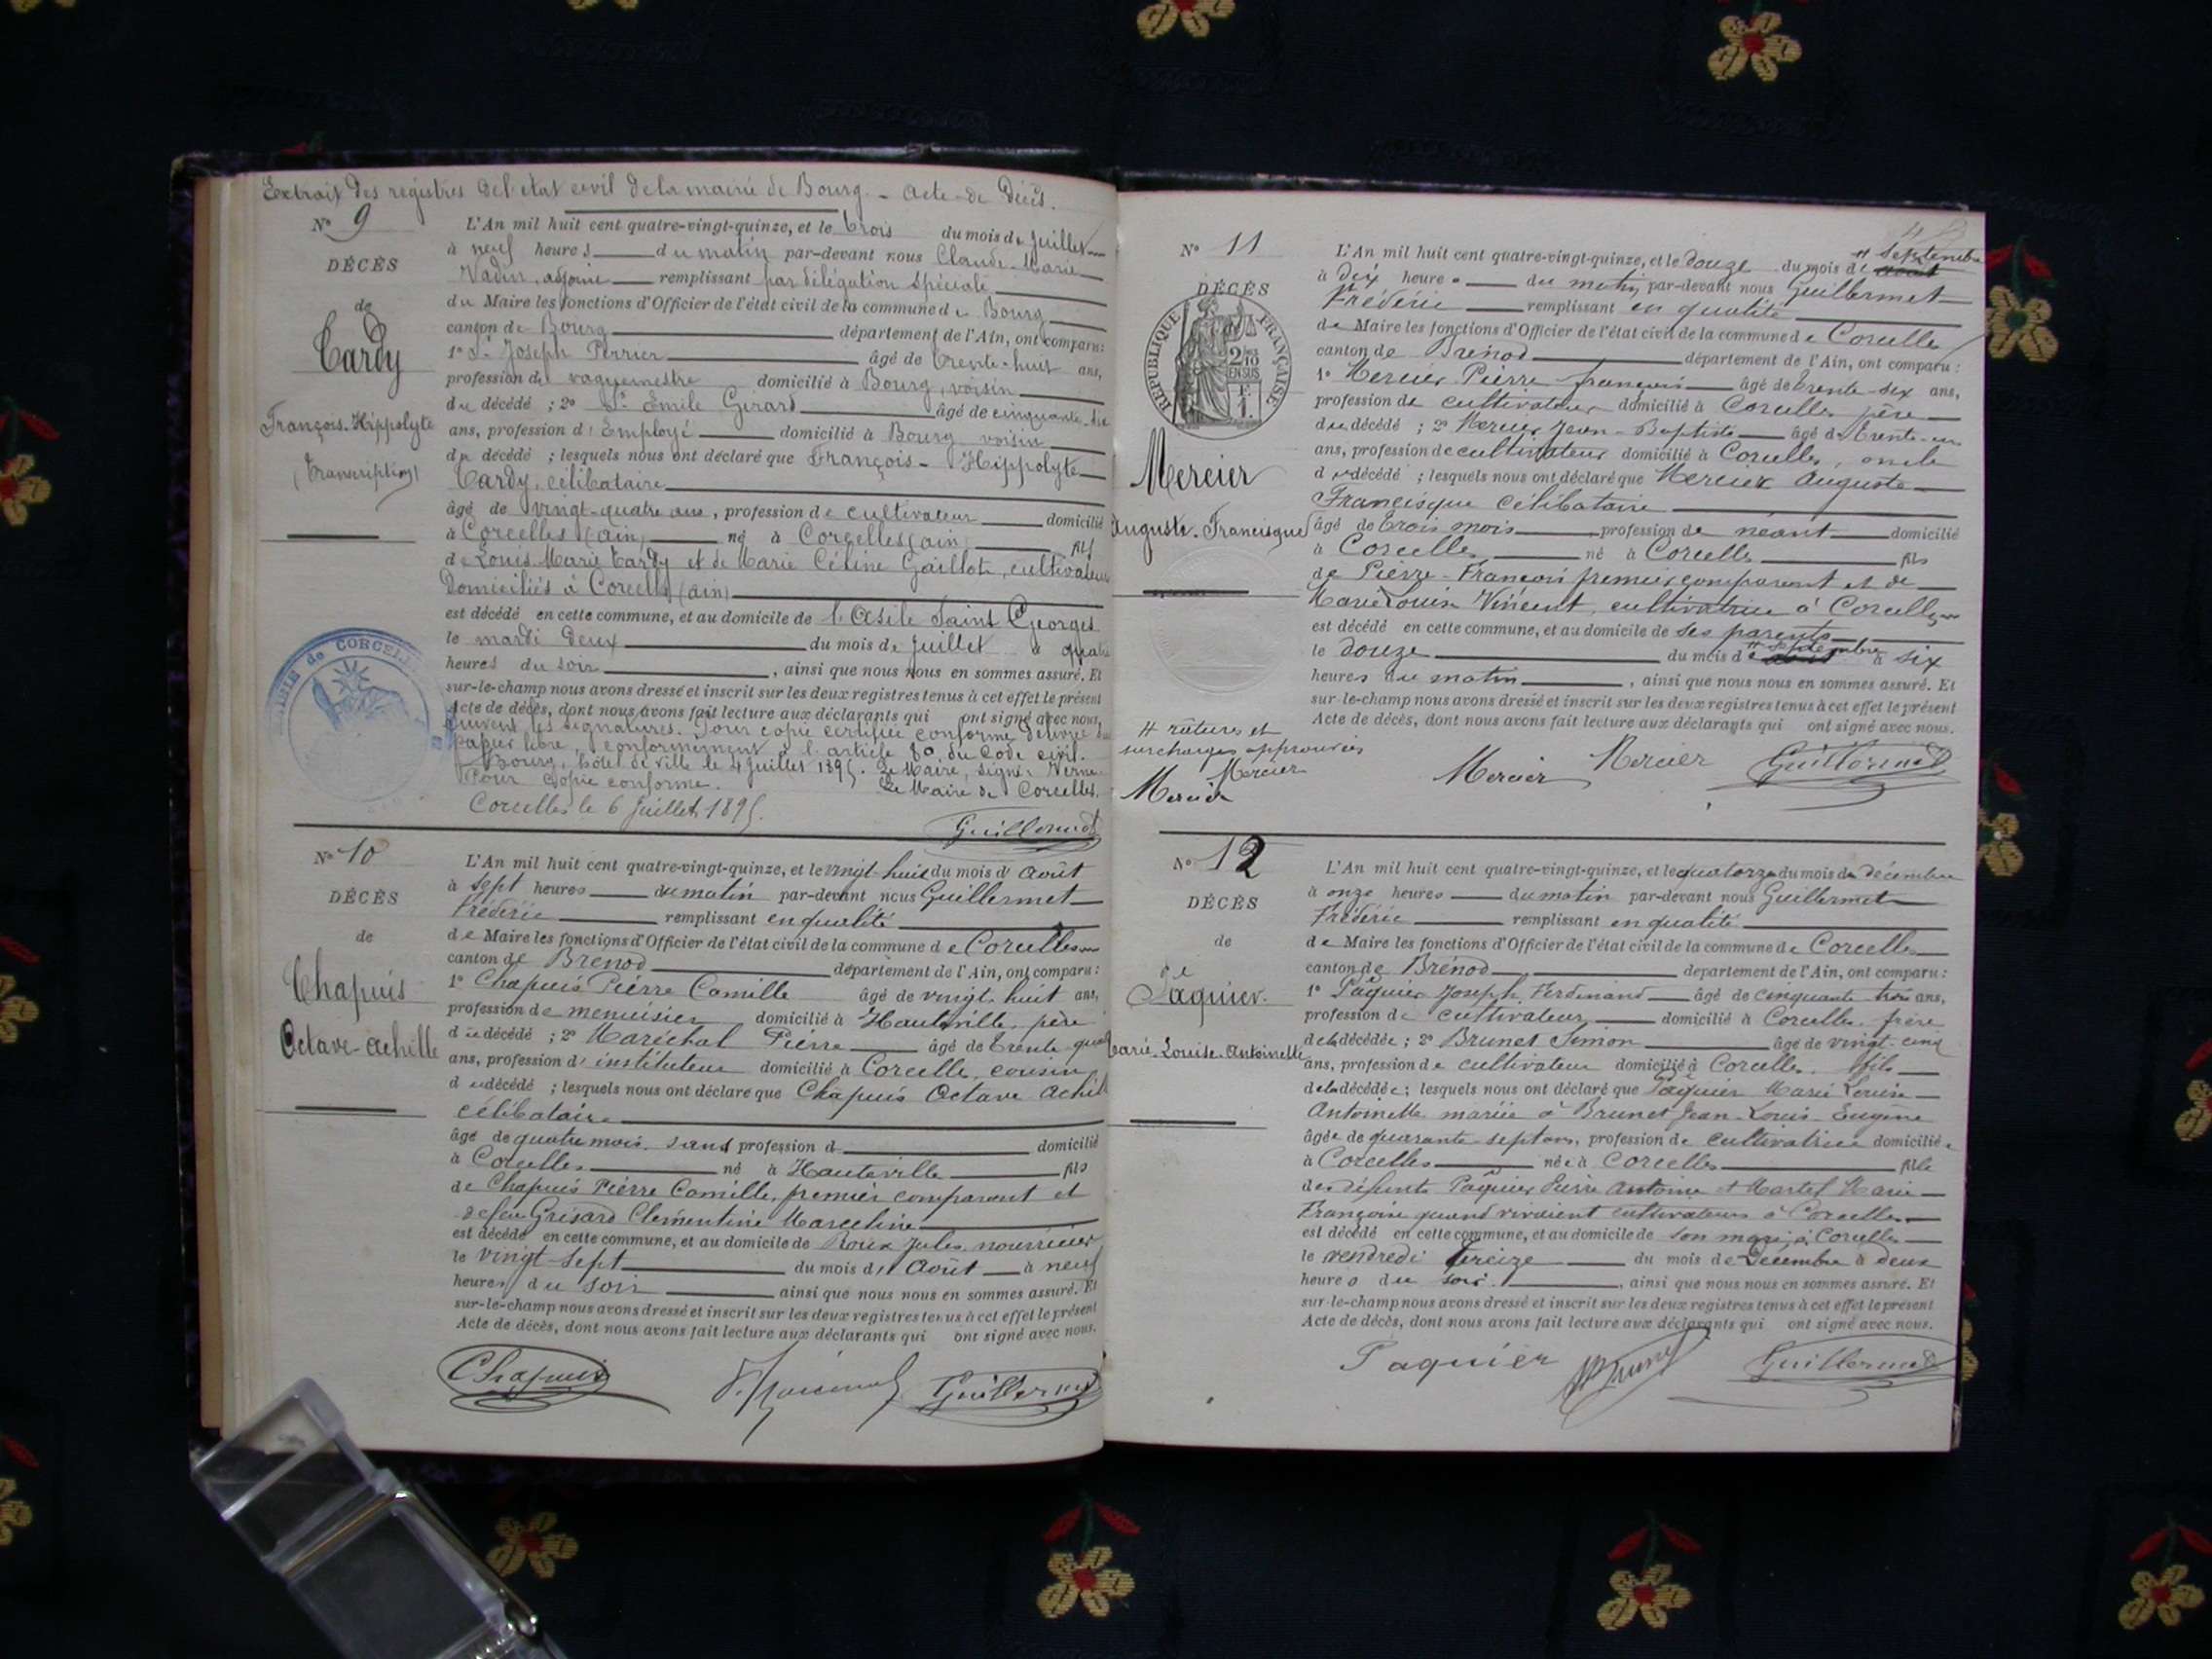 Extrait des registres de l'état civil de la mairie de Bourg. - Acte de Décès.
N° 9
DÉCÈS
de
Tardy
François-Hippolyte
(Transcription)
L'An mil huit cent quatre-vingt-quinze, et le trois du mois de Juillet
à neuf heures du matin par-devant nous Claude-Marie
adjoint remplissant par délégation spéciale
du Maire les fonctions d'Officier de l'état civil de la commune de Bourg
canton de Bourg département de l'Ain, ont comparu:
1° Sr Joseph Perrier âgé de trente-huit ans,
profession de vaguemestre domicilié à Bourg, voisin
du décédé ; 2° Sr Emile Girard âgé de cinquante-six
ans, profession d' Employé domicilié à Bourg voisin
du décédé ; lesquels nous ont déclaré que François-Hippolyte
Tardy, célibataire
âgé de vingt-quatre ans, profession de cultivateur domicilié
à Corcelles (ain) né à Corcelles (ain) fils
de Louis Marie Tardy et de Marie Céline Gaillot, cultivateurs
Domiciliés à Corcelles (ain)
est décédé en cette commune, et au domicile de l'Asile Saint Georges
le mardi deux du mois de Juillet à quatre
heures du soir, ainsi que nous nous en sommes assuré. Et
sur-le-champ nous avons dressé et inscrit sur les deux registres tenus à cet effet le présent
Acte de décès, dont nous avons fait lecture aux déclarants qui ont signé avec nous,
suivent les signatures. Pour copie certifiée conforme délivrée sur
papier libre, conformément à l'article 80 du code civil.
Bourg, hôtel de ville le 4 Juillet 1895. Le Maire, signé: Verne
Pour copie conforme. Le Maire de Corcelles.
Corcelles le 6 Juillet 1895.
Guillermet
MAIRIE de CORCELLES
N° 10
DÉCÈS
de
Chapuis
Octave-Achille
L'An mil huit cent quatre-vingt-quinze, et le vingt-huit du mois d' Août
à sept heures du matin par-devant nous Guillermet
Frédéric remplissant en qualité
de Maire les fonctions d'Officier de l'état civil de la commune de Corcelles
canton de Brénod département de l'Ain, ont comparu:
1° Chapuis Pierre Camille âgé de vingt-huit ans,
profession de menuisier domicilié à Hauteville, père
du décédé ; 2° Maréchal Pierre âgé de trente-quatre
ans, profession d' instituteur domicilié à Corcelle, cousin
du décédé ; lesquels nous ont déclaré que Chapuis Octave Achille
célibataire
âgé de quatre mois sans profession d domicilié
à Corcelles né à Hauteville fils
de Chapuis Pierre Camille, premier comparant et
de feu Grisard Clémentine Marceline
est décédé en cette commune, et au domicile de Roux Jules, nourricier
le vingt-sept du mois d' Août à neuf
heures du soir ainsi que nous nous en sommes assuré. Et
sur-le-champ nous avons dressé et inscrit sur les deux registres tenus à cet effet le présent
Acte de décès, dont nous avons fait lecture aux déclarants qui ont signé avec nous.
Chapuis Guillermet
N° 11
DÉCÈS
de
RÉPUBLIQUE FRANÇAISE
Mercier
Auguste-Francisque
L'An mil huit cent quatre-vingt-quinze, et le douze du mois de août # septembre
à dix heures du matin par-devant nous Guillermet
Frédéric remplissant en qualité
de Maire les fonctions d'Officier de l'état civil de la commune de Corcelle
canton de Brénod département de l'Ain, ont comparu:
1° Mercier Pierre-françois âgé de trente-six ans,
profession de cultivateur domicilié à Corcelles père
du décédé ; 2° Mercier Jean-Baptiste âgé de trente-un
ans, profession de cultivateur domicilié à Corcelles, oncle
du décédé ; lesquels nous ont déclaré que Mercier Auguste
Francisque célibataire
âgé de trois mois profession de néant domicilié
à Corcelles né à Corcelle fils
de Pierre-François premier comparant et de
Marie Louise Vincent, cultivatrice à Corcelles
est décédé en cette commune, et au domicile de ses parents
le douze du mois de août # septembre à six
heures du matin, ainsi que nous nous en sommes assuré. Et
sur-le-champ nous avons dressé et inscrit sur les deux registres tenus à cet effet le présent
Acte de décès, dont nous avons fait lecture aux déclarants qui ont signé avec nous.
# rature et
surcharges approuvées
Mercier
Mercier
Mercier Mercier Guillermet
N° 12
DÉCÈS
de
Pâquier.
Marie-Louise-Antoinette
L'An mil huit cent quatre-vingt-quinze, et le quatorze du mois de décembre
à onze heures du matin par-devant nous Guillermet
Frédéric remplissant en qualité
de Maire les fonctions d'Officier de l'état civil de la commune de Corcelle
canton de Brénod département de l'Ain, ont comparu:
1° Pâquier Joseph Ferdinand âgé de cinquante trois ans,
profession de cultivateur domicilié à Corcelles, frère
de la décédée ; 2° Brunet Simon âgé de vingt-cinq
ans, profession de cultivateur domicilié à Corcelles, fils
de la décédée ; lesquels nous ont déclaré que Pâquier Marie Louise
Antoinette mariée à Brunet Jean-Louis-Eugène
âgée de quarante-sept ans, profession de cultivatrice domiciliée
à Corcelles née à Corcelles fille
des défunts Paquier Pierre Antoine et Martel Marie
Françoise quand vivaient cultivateurs à Corcelles
est décédé en cette commune, et au domicile de son mari, à Corcelles
le vendredi treize du mois de Décembre à deux
heures du soir, ainsi que nous nous en sommes assuré. Et
sur-le-champ nous avons dressé et inscrit sur les deux registres tenus à cet effet le présent
Acte de décès, dont nous avons fait lecture aux déclarants qui ont signé avec nous.
Paquier Brunet Guillermet